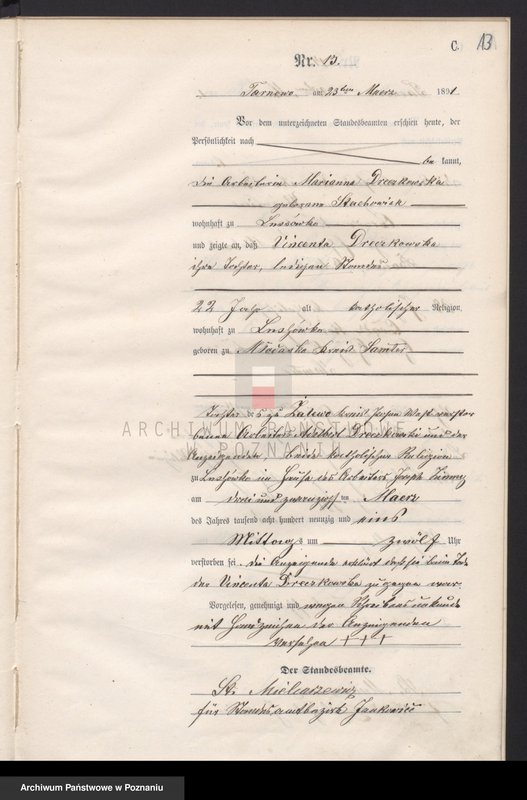 C. 13
Nr. 13.
Tarnowo am 23ten Maerz 1891.
Vor dem unterzeichneten Standesbeamten erschien heute, der
Persönlichkeit nach
be kannt,
die Arbeiterin Marianna Dreczkowska
geborene Stachowiak
wohnhaft zu Lussówko
und zeigte an, daß Vincenta Dreczkowska
ihre Tochter, ledigen Standes
22 Jahr alt katholischer Religion,
wohnhaft zu Lussówko
geboren zu Kreis Samter
Tochter des zu Kreis verstor
benen Arbeiters Dreczkowski und der
Anzeigenden beide katholischer Religion
zu Lussówko im Hause des Arbeiters Joseph
am drei und zwanzigsten Maerz
des Jahres tausend acht hundert neunzig und eins
Mittags um zwölf Uhr
verstorben sei. die Anzeigende erklärt daß sie beim Tode
der Vincenta Dreczkowska zugegen war.
Vorgelesen, genehmigt und wegen Schreibensunkunde
mit Handzeichen der Anzeigenden
versehen † † †
Der Standesbeamte.
St. Mielcarzewicz
für Standesamtbezirk Jankowice
ARCHIWUM PAŃSTWOWE
POZNANIU
Archiwum Państwowe w Poznaniu